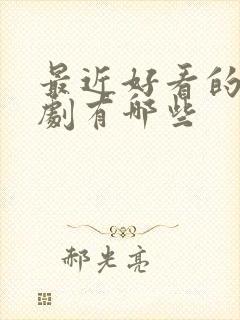 最近好看的
劇有哪些
郝光亮